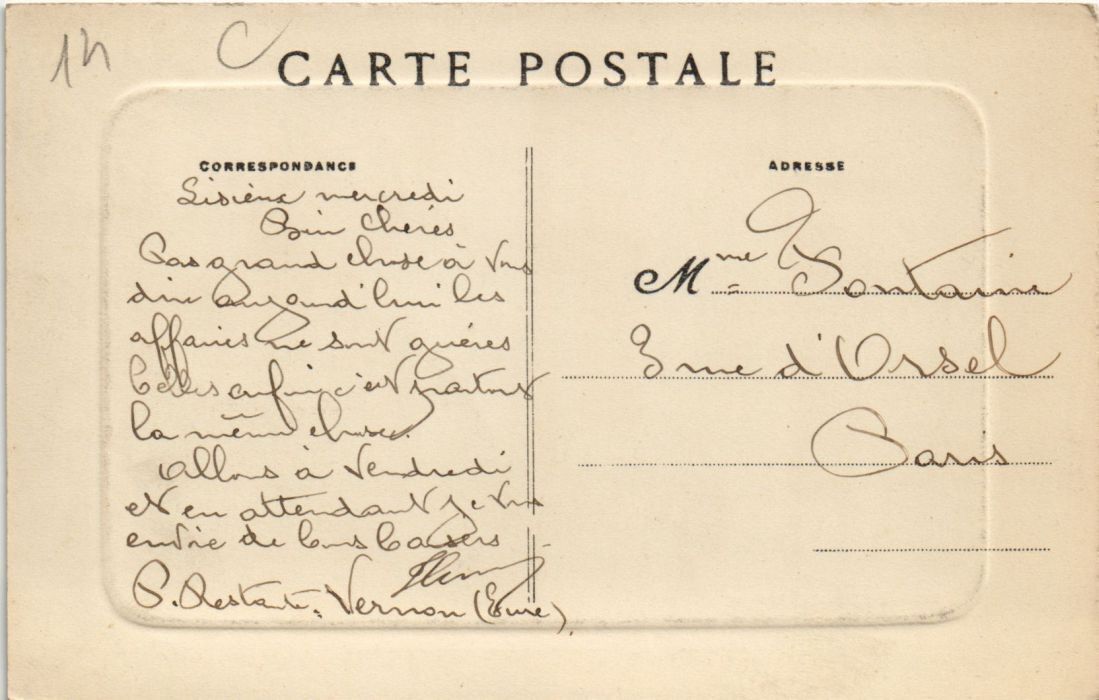 14 C
CARTE POSTALE
CORRESPONDANCE
Lisieux mercredi
Bien Chéres
Pas grand chose à vous
dire aujourd'hui les
affaires ne sont guéres
belles enfin c'est partout
la même chose.
Allons à vendredi
et en attendant je vous
envoie de bons baisers
P. Restante. Vernon (Eure).
ADRESSE
Mme Fontaine
3 rue d'Orsel
Paris